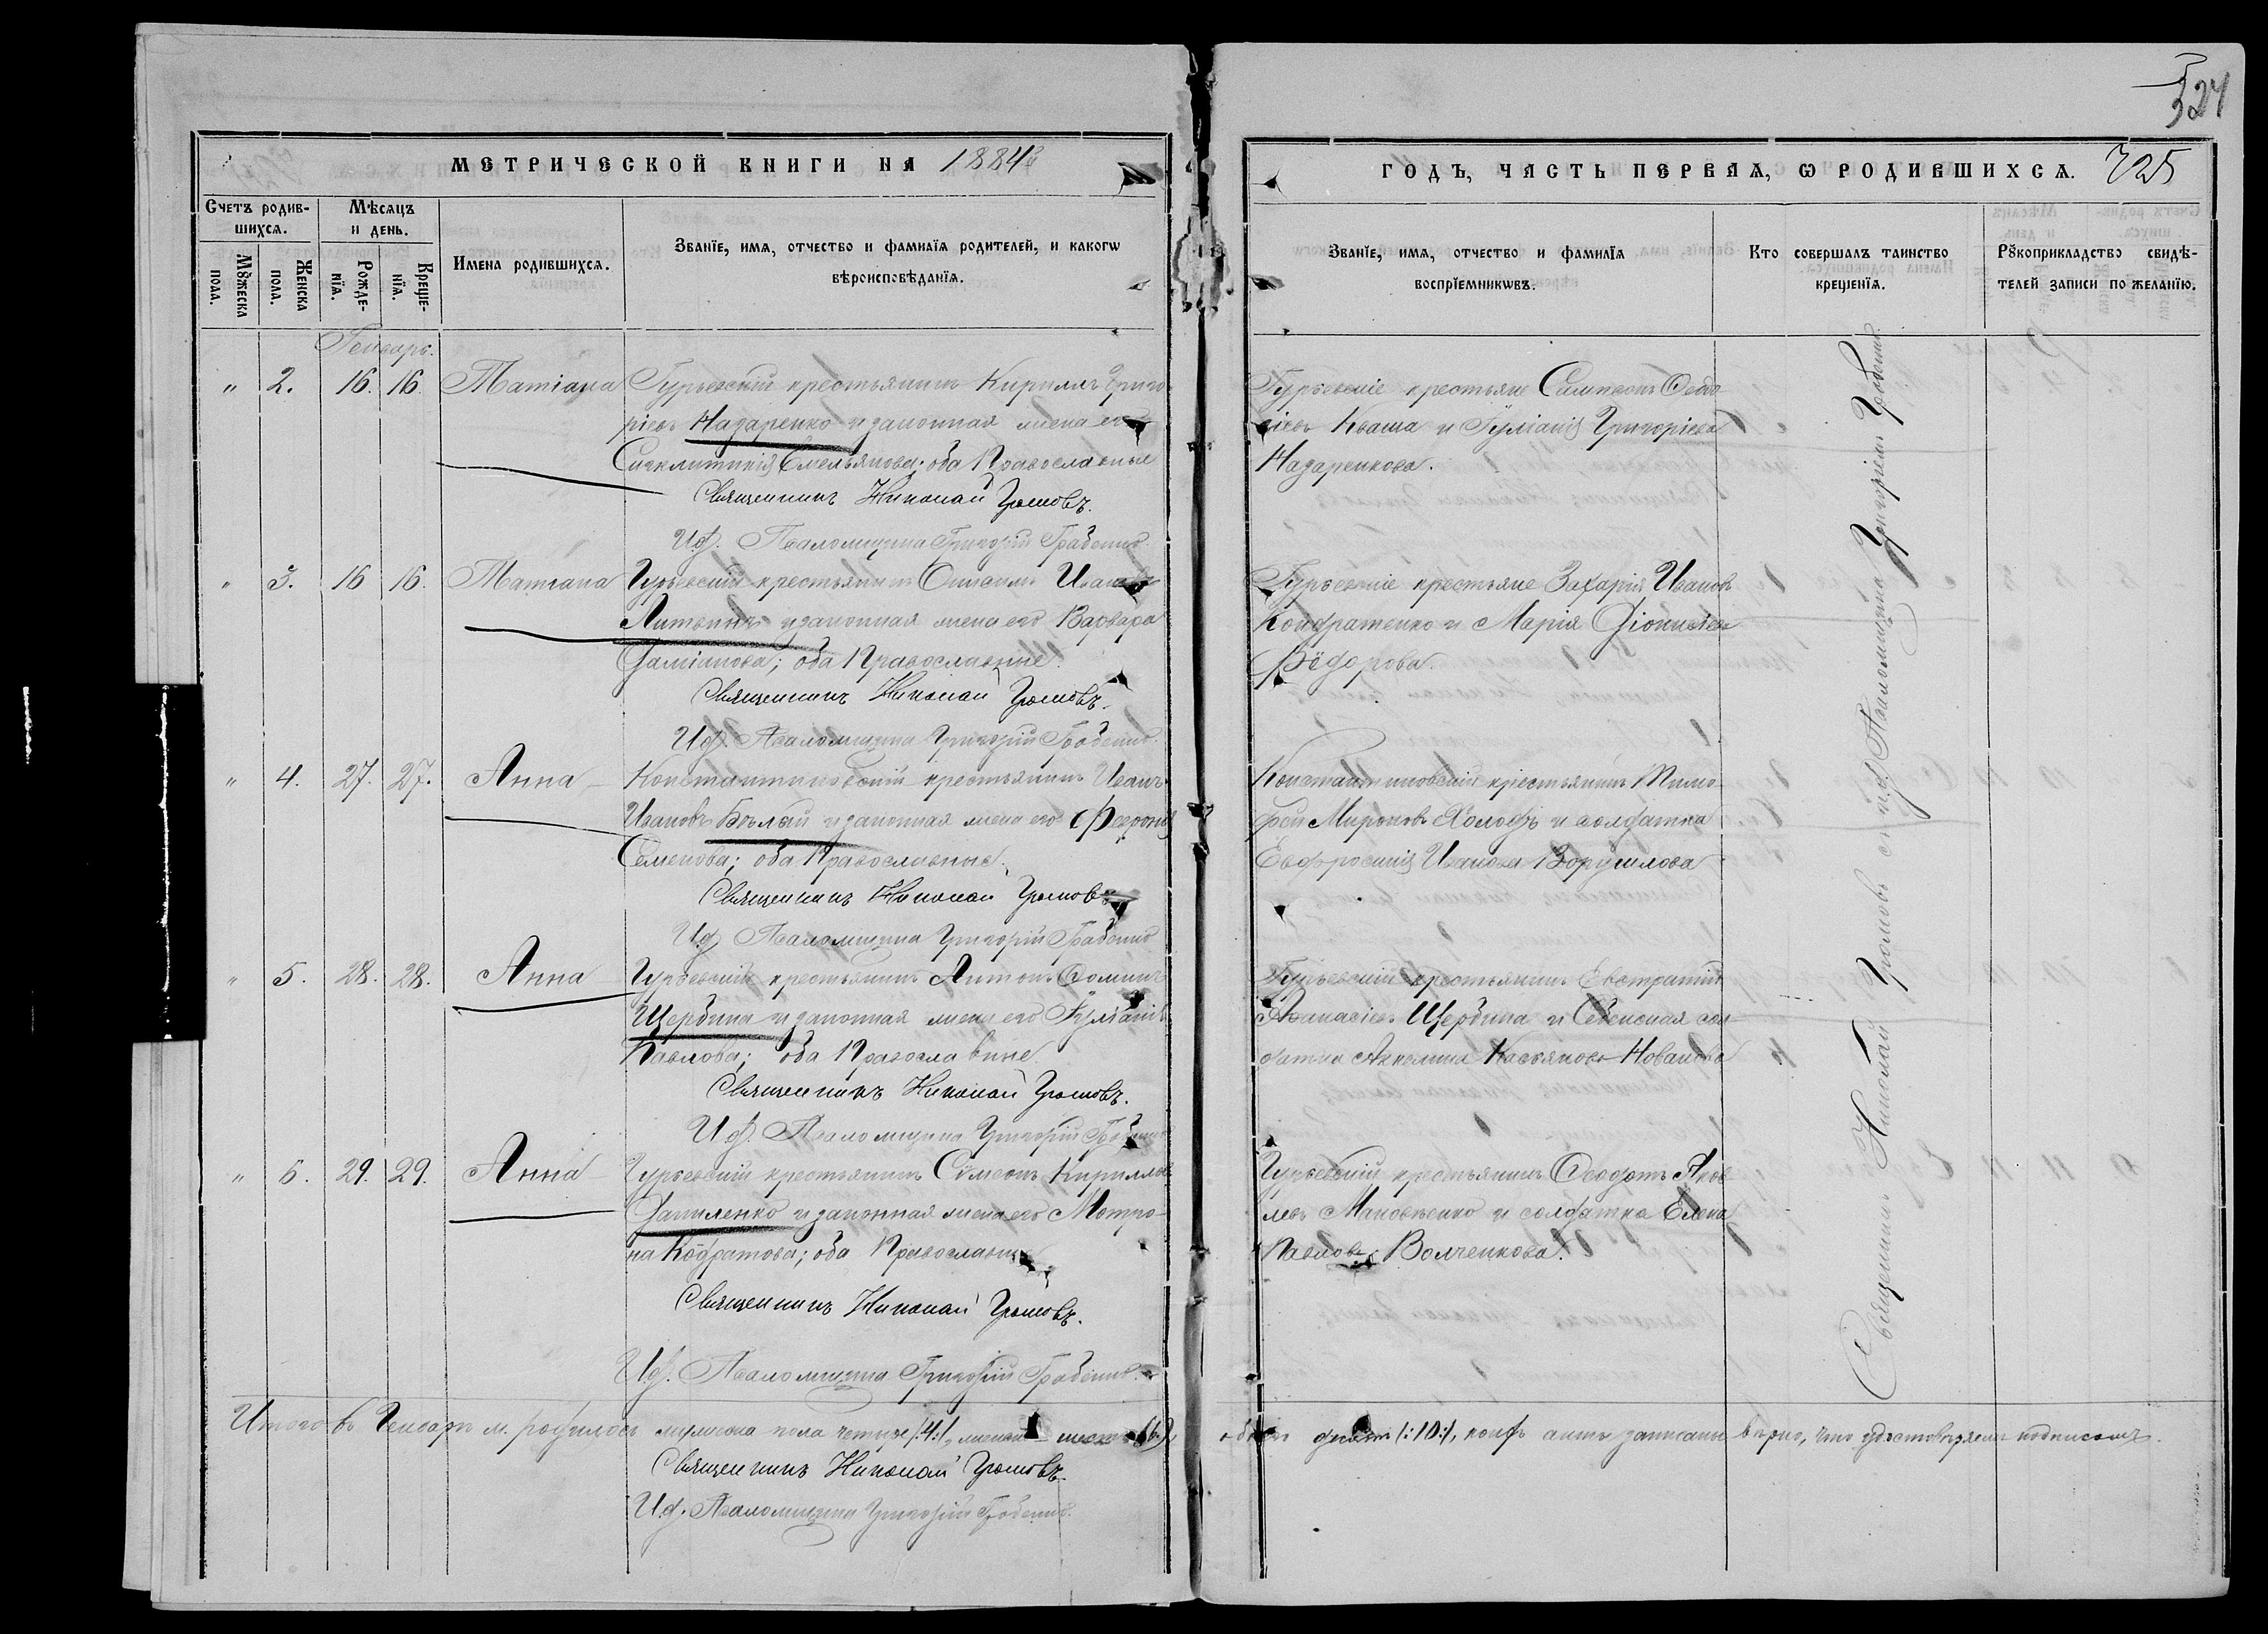 324
МЕТРИЧЕСКОЙ КНИГИ НА 1884й
ГОДЪ, ЧАСТЬ ПЕРВАЯ, Ѡ РОДИВШИХСѦ. 725
Счетъ родив-
шихсѧ.
Мꙋжеска пола.
Женска пола.
Мѣсѧцъ
и день.
Рожде-
нїѧ.
Креще-
нїѧ.
Имена родившихсѧ.
Званїе, имѧ, отчество и фамилїѧ родителей, и какогѡ
вѣроисповѣданїѧ.
Званїе, имѧ, отчество и фамилїѧ
воспрїемникѡвъ.
Кто совершалъ таинство
крещенїѧ.
Рꙋкоприкладство свидѣ-
телей записи по желанїю.
Генварь.
" 2. 16. 16. Татіана
Гурьевскій крестьянинъ Кириллъ Григо-
ріевъ Назаренко и законная жена его
Синклитикія Емельянова; оба Православные
Священникъ Николай Громовъ.
И.д. Псаломщика Григорій
Гурьевскіе крестьяне Сампсонъ
Кваша и Іуліанія Григоріева
Назаренкова.
" 3. 16 16. Татіана
Гурьевскій крестьянинъ Онисимъ Ивановъ
Литвинъ и законная жена его Варвара
Даміанова; оба Православные.
Священникъ Николай Громовъ.
И.д. Псаломщика Григорій
Гурьевскіе крестьяне Захарія Ивановъ
Кондратенко и Марія Діонисіева
Ѳёдорова.
" 4. 27. 27. Анна
Константиновскій крестьянинъ Иванъ
Ивановъ Бѣлый и законная жена его Феѵронія
Семенова; оба Православные.
Священникъ Николай Громовъ
И.д. Псаломщика Григорій
Константиновскій крестьянинъ Тимо-
фей Мироновъ Холодъ и солдатка
Евфросинія Иванова Ворушлова
" 5. 28. 28. Анна
Гурьевскій крестьянинъ Антонъ Ѳоминъ
Щербина и законная жена его Іуліанія
Павлова; оба Православные.
Священникъ Николай Громовъ.
И.д. Псаломщика Григорій
Гурьевскій крестьянинъ Евстратій
Аѳанасіевъ Щербина и сол-
датка Акилина Касьянова
" 6. 29. 29. Анна
Гурьевскій крестьянинъ Сѵмеонъ Кирилловъ
Даниленко и законная жена его Матро-
на Кодратова; оба Православные
Священникъ Николай Громовъ.
И.д. Псаломщика Григорій
Гурьевскій крестьянинъ Ѳеодотъ Яков-
левъ и солдатка Елена
Павлова Волченкова.
Священникъ Николай Громовъ съ и.д. Псаломщика Григоріемъ
Итого въ Генварѣ м. родилось мужеска пола четыре /:4:/, женска – шесть (6), обоего десять /:10:/, коихъ акты записаны вѣрно, что удостовѣряемъ подписомъ.
Священникъ Николай Громовъ.
И.д. Псаломщика Григорій